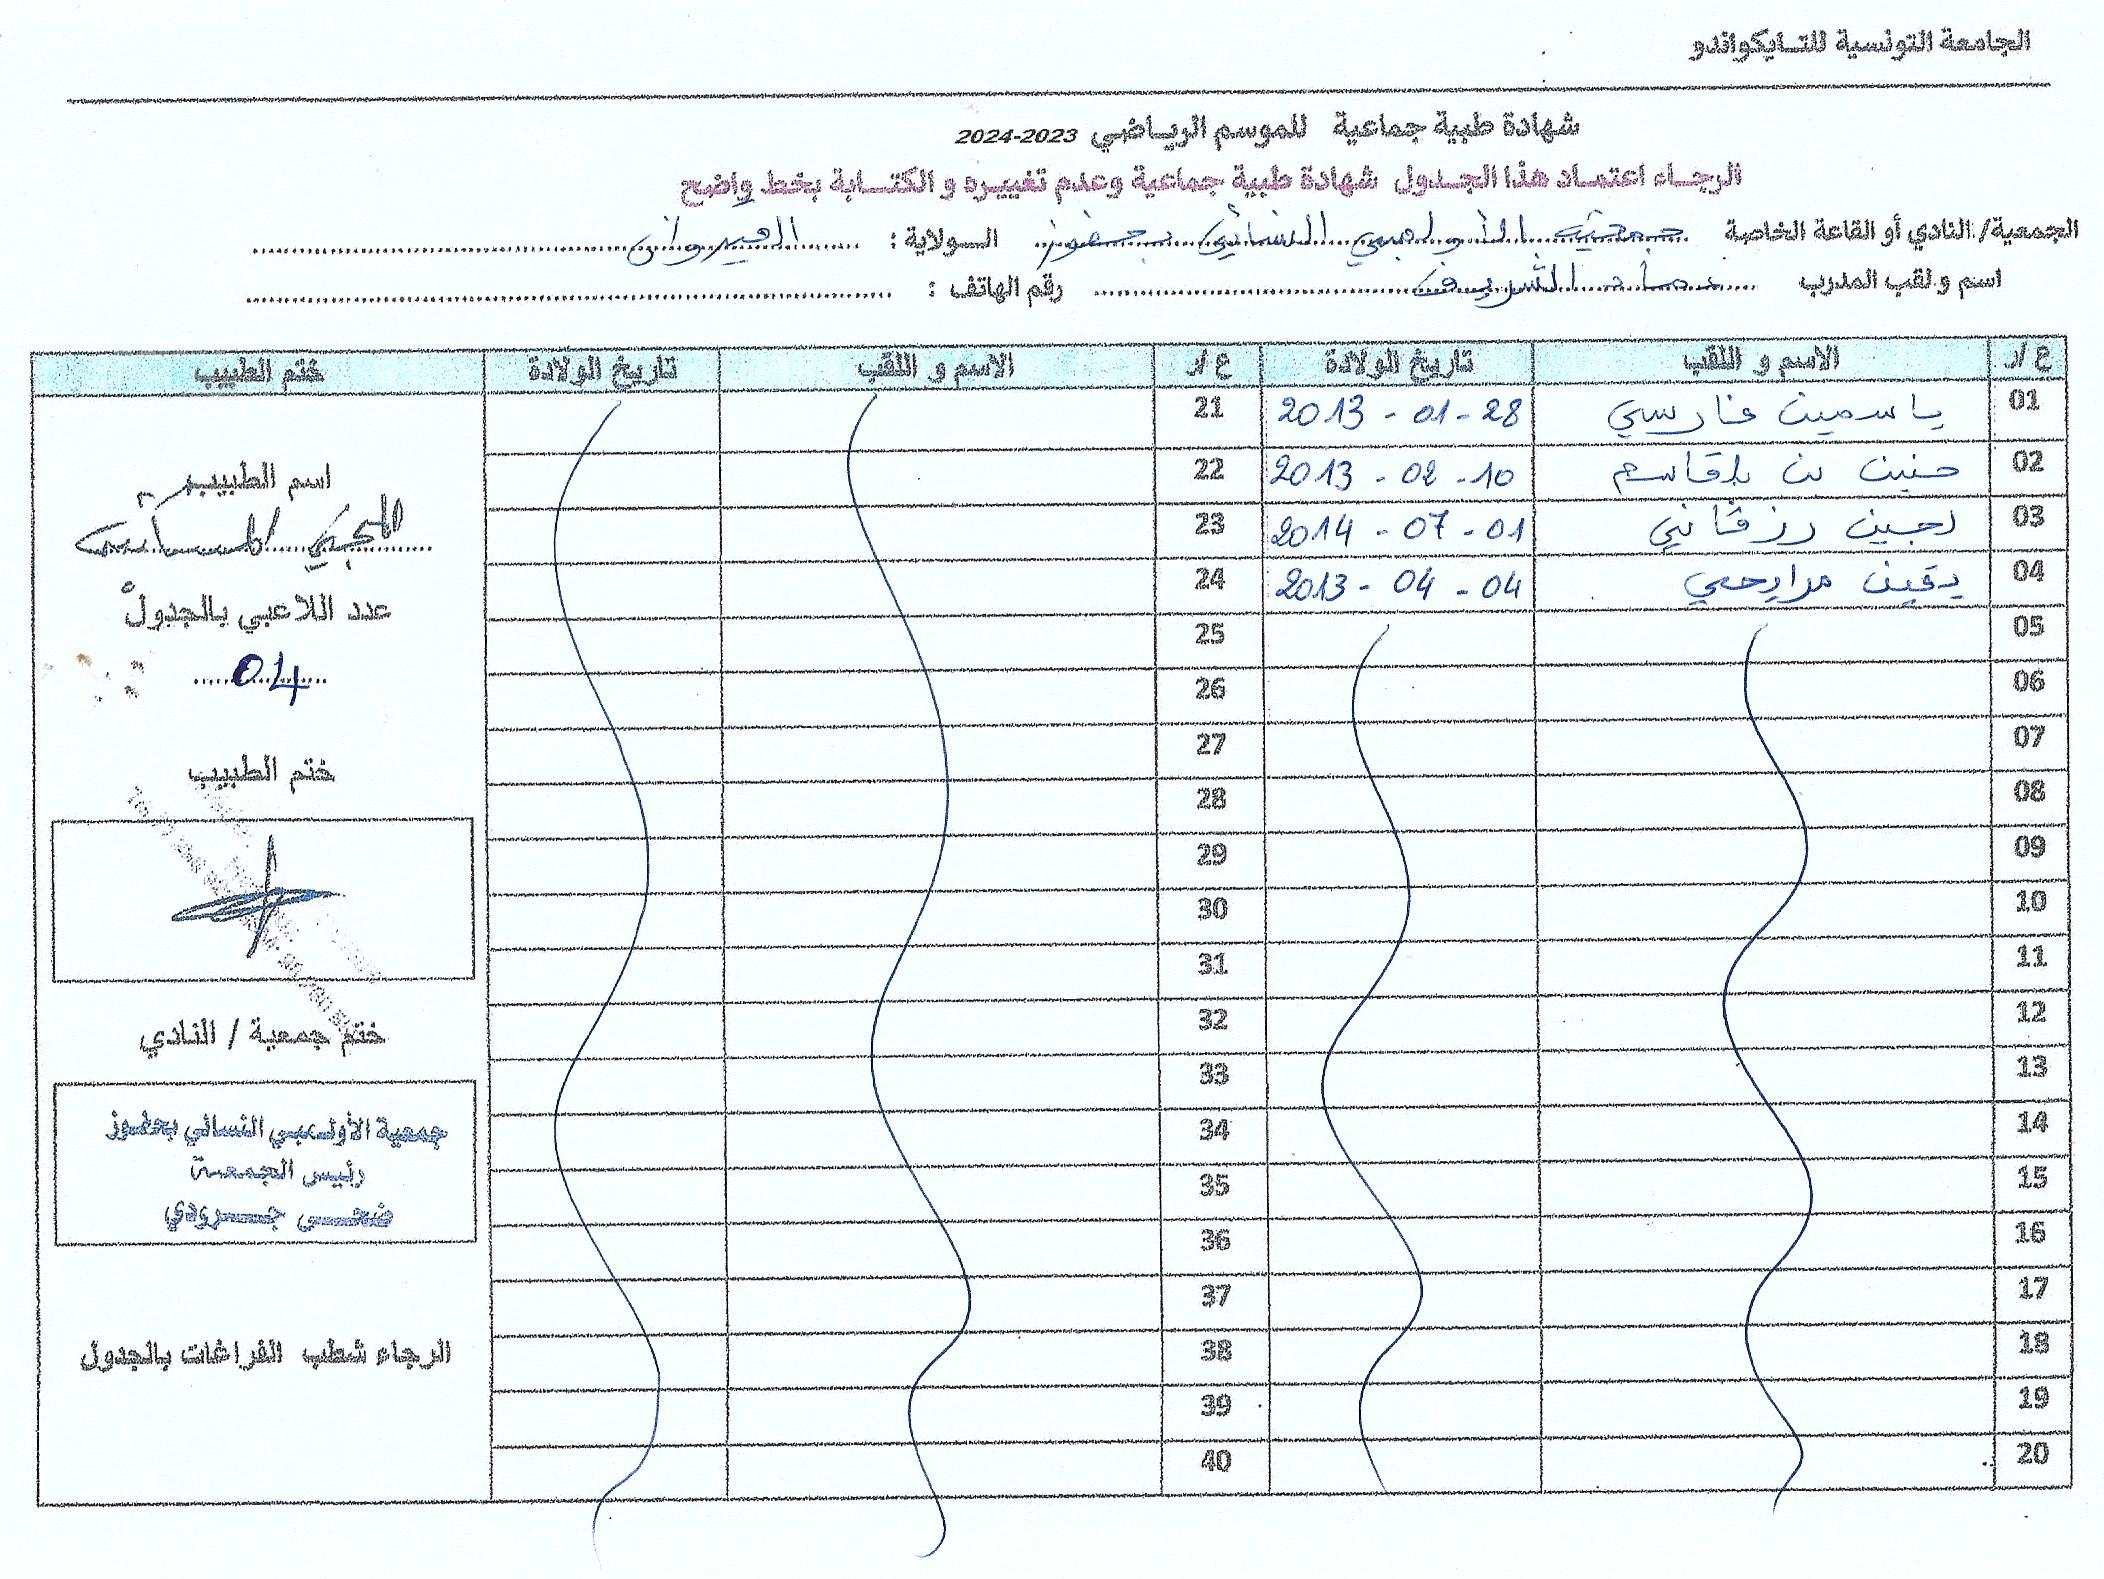 الجامعة التونسية للتايكواندو
شهادة طبية جماعية للموسم الرياضي 2023-2024
الرجاء اعتماد هذا الجدول شهادة طبية جماعية وعدم تغييره و الكتابة بخط واضح
الجمعية/ النادي أو القاعة الخاصة جمعية الأولمبي النسائي بحفوز السولاية : القيروان
اسم و لقب المدرب الشريف رقم الهاتف :
ع /ر الاسم و اللقب تاريخ الولادة ع /ر الاسم و اللقب تاريخ الولادة ختم الطبيب
01 ياسمين فارسي 2013 - 01 - 28 21
02 حنين بن بلقاسم 2013 - 02 - 10 22
03 لجين رزقاني 2014 - 07 - 01 23
04 يقين مرايحي 2013 - 04 - 04 24
05 25
06 26
07 27
08 28
09 29
10 30
11 31
12 32
13 33
14 34
15 35
16 36
17 37
18 38
19 39
20 40
اسم الطبيب
عدد اللاعبي بالجدول
04
ختم الطبيب
ختم جمعية / النادي
جمعية الأولمبي النسائي بحفوز
رئيس الجمعية
ضحى جرودي
الرجاء شطب الفراغات بالجدول